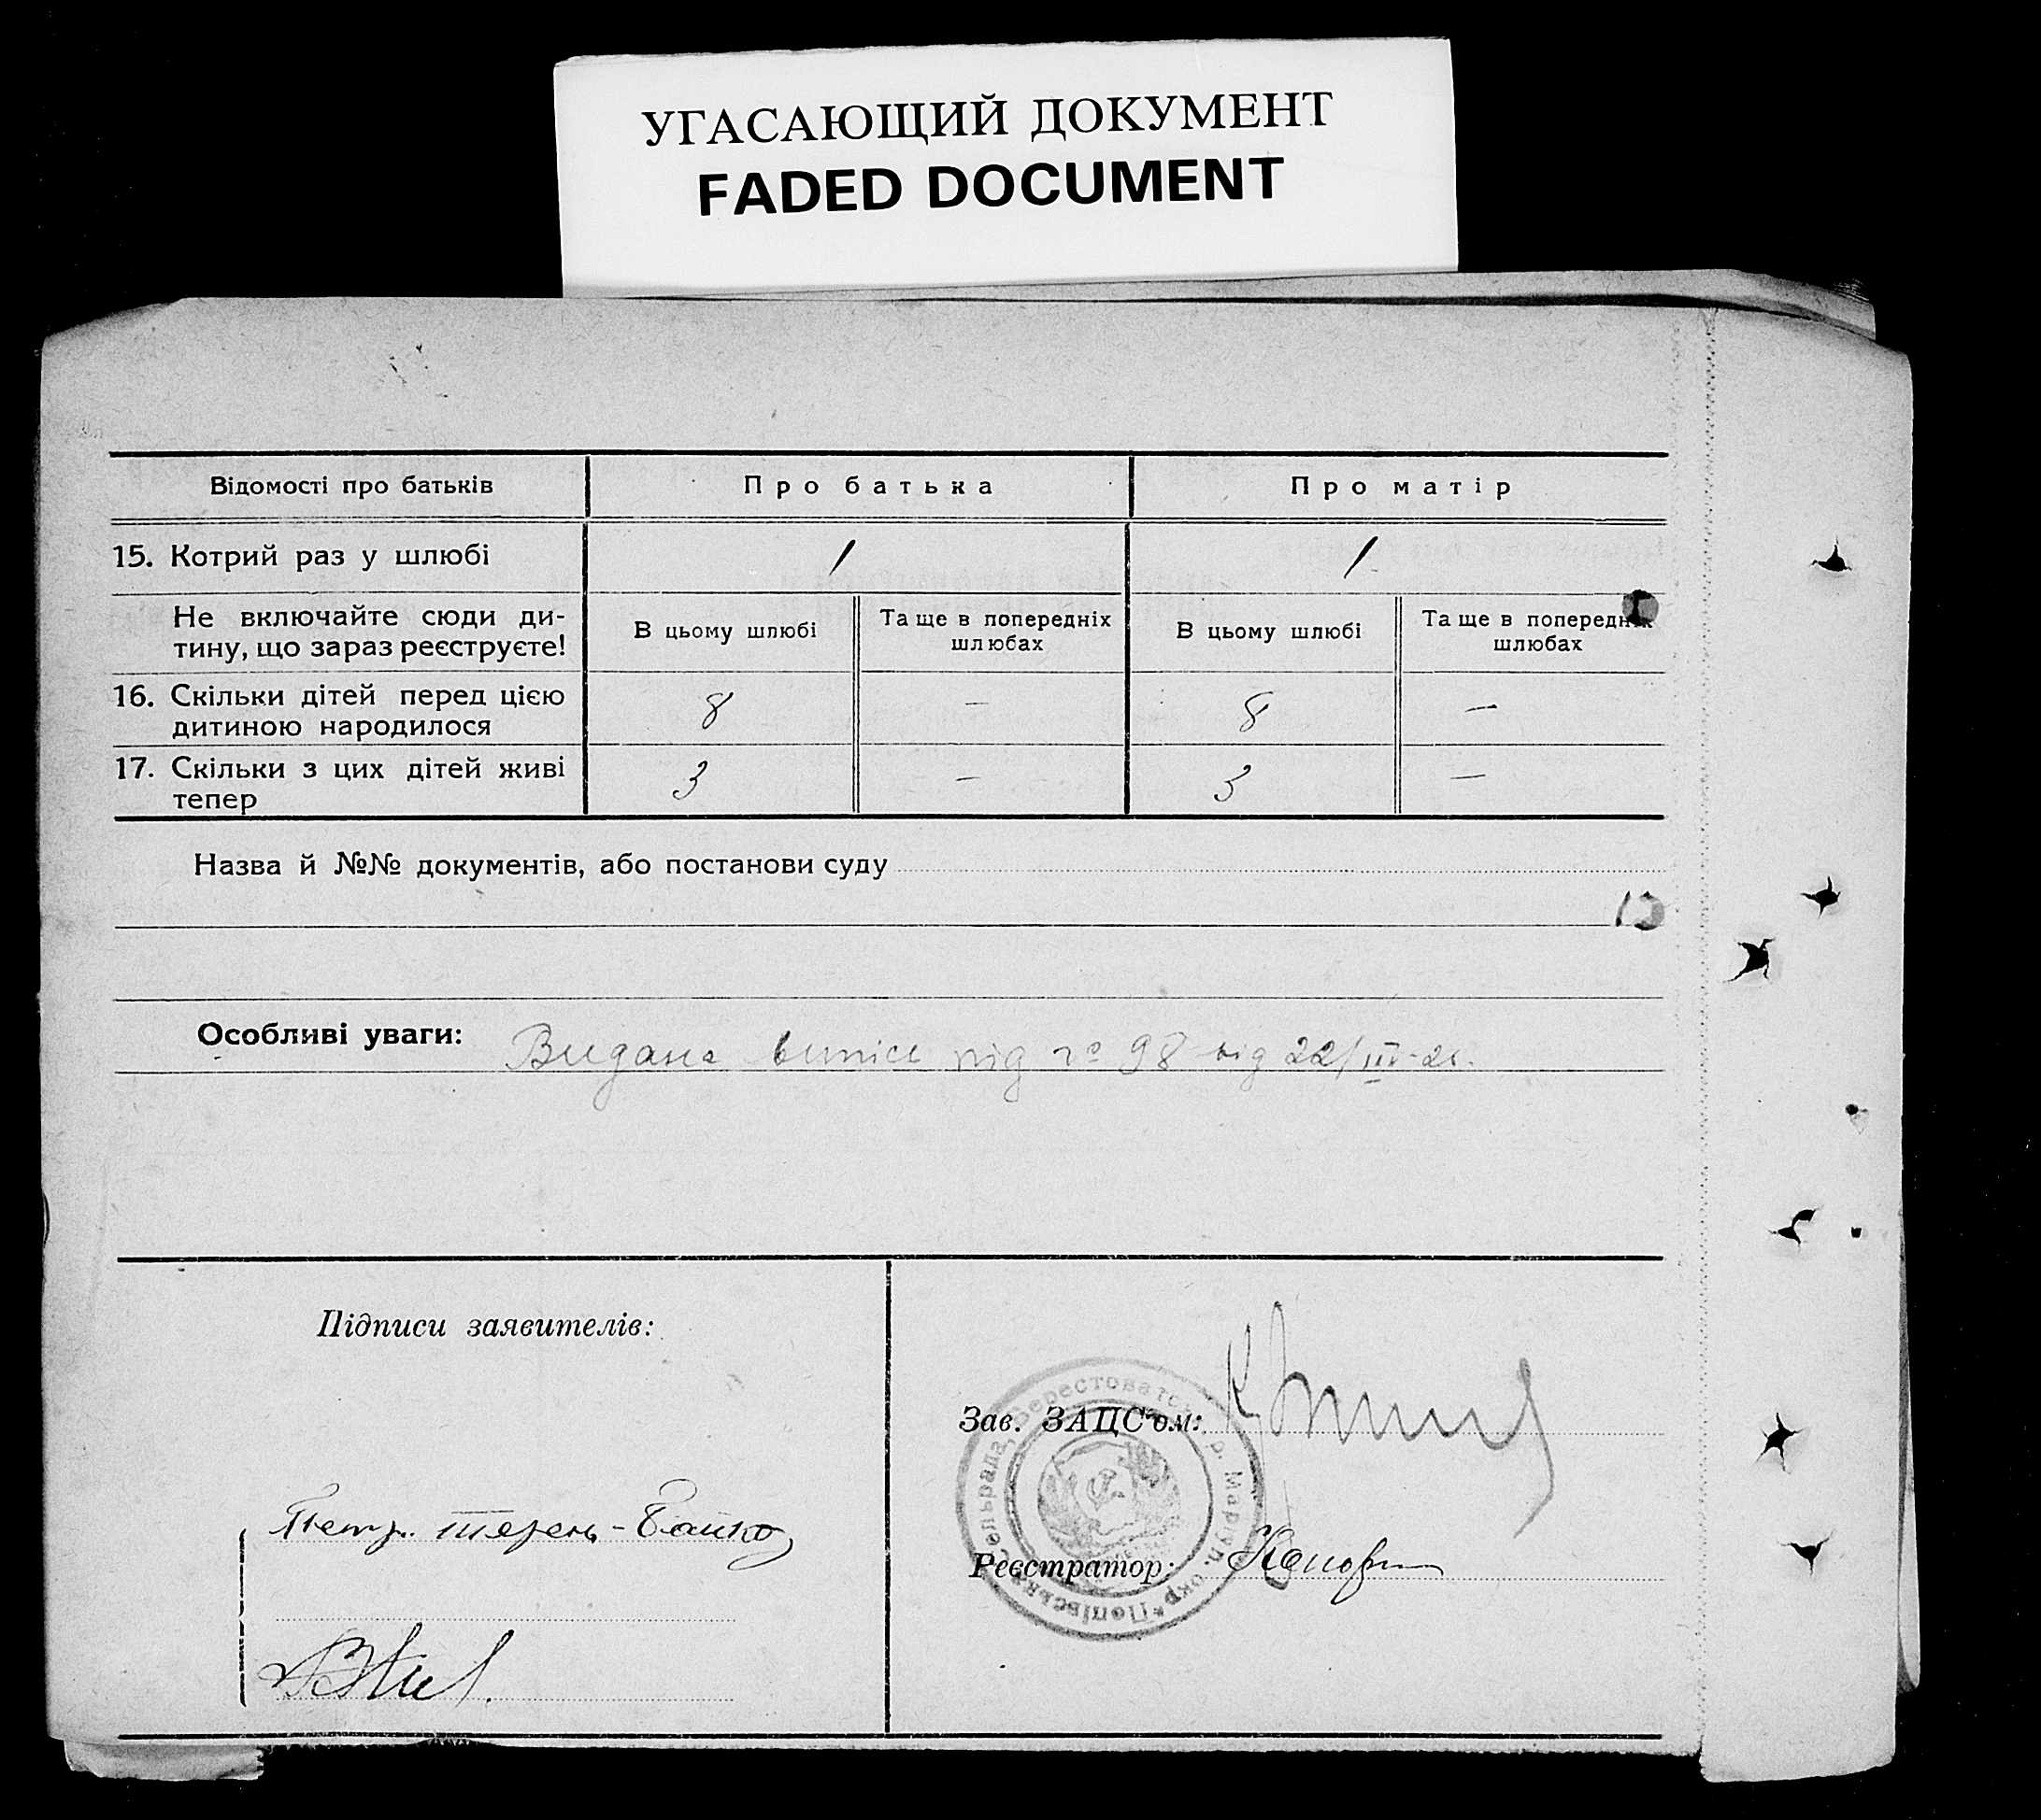 УГАСАЮЩИЙ ДОКУМЕНТ
FADED DOCUMENT
Відомості про батьків
Про батька
Про матір
15. Котрий раз у шлюбі
1
1
Не включайте сюди ди-
тину, що зараз реєструєте!
В цьому шлюбі
Та ще в попередніх
шлюбах
В цьому шлюбі
Та ще в попередніх
шлюбах
16. Скільки дітей перед цією
дитиною народилося
8
—
8
—
17. Скільки з цих дітей живі
тепер
3
—
3
—
Назва й №№ документів, або постанови суду
Особливі уваги: Видана випісь під № 98 від 22/III-
Підписи заявителів:
Зав. ЗАЦС'ом:
Петр. -Байко
Реєстратор:
сельрада, Берестоватськ р. Маріуп. окр. Попівська